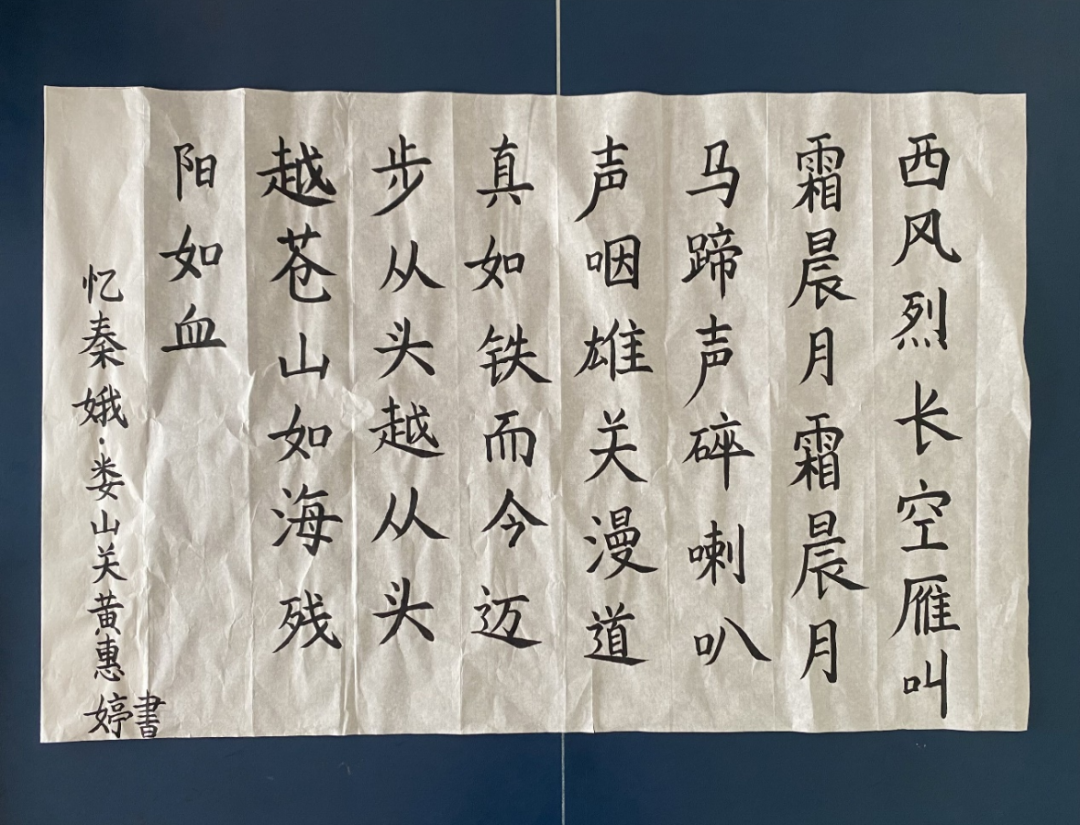 西风烈长空雁叫
霜晨月霜晨月
马蹄声碎喇叭
声咽雄关漫道
真如铁而今迈
步从头越从头
越苍山如海残
阳如血
忆秦娥·娄山关黄惠婷書